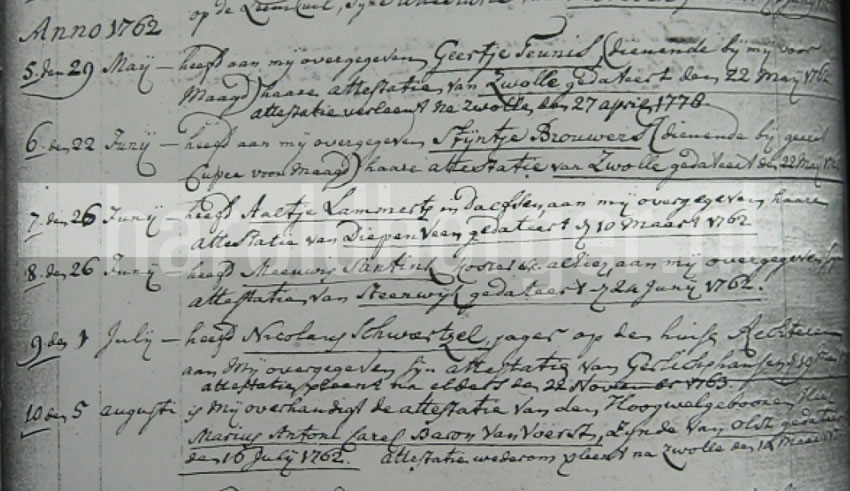 op de
Anno 1762
5. den 29 Maij - heeft aan mij overgegeven Geertje Teunis, (dienende bij mij voor
Maagd) haare attestatie van Zwolle gedateert den 22 Maij 1762
attestatie verleent na Zwolle den 27 april 1778.
6. den 22 Junij - heeft aan mij overgegeven Stijntje Brouwers (dienende bij
Cuper voor Maagd) haare attestatie van Zwolle gedateert den 22 Maij
7. den 26 Junij heeft Aaltje Lammerts in Dalfsen, aan mij overgegeven haare
attestatie van Diepenveen gedateert d 10 Maart 1762
8. den 26 Junij heeft Meeuwis Santink Koster alhier, aan mij overgegeven
attestatie van Steenwijk gedateert d 24 Junij 1762.
9. den 1 Julij - heeft Nicolaus Schwartzel, jager op den huise Rechteren
aan mij overgegeven sijn attestatie van
attestatie verleent na elders den 22 November 1763.
10 den 5 augusti is mij overhandigt de attestatie van den Hoogwelgebooren Heer
Marius Antoni Carel Baron van Voerst, zijnde van Olst gedateert
den 16 Julij 1762. attestatie wederom verleent na Zwolle den 12 Maart
haroldburger.nl